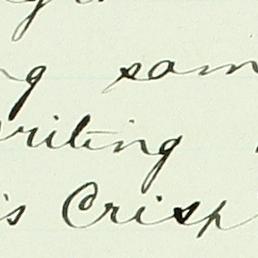 ng sam
writing
is Crisp